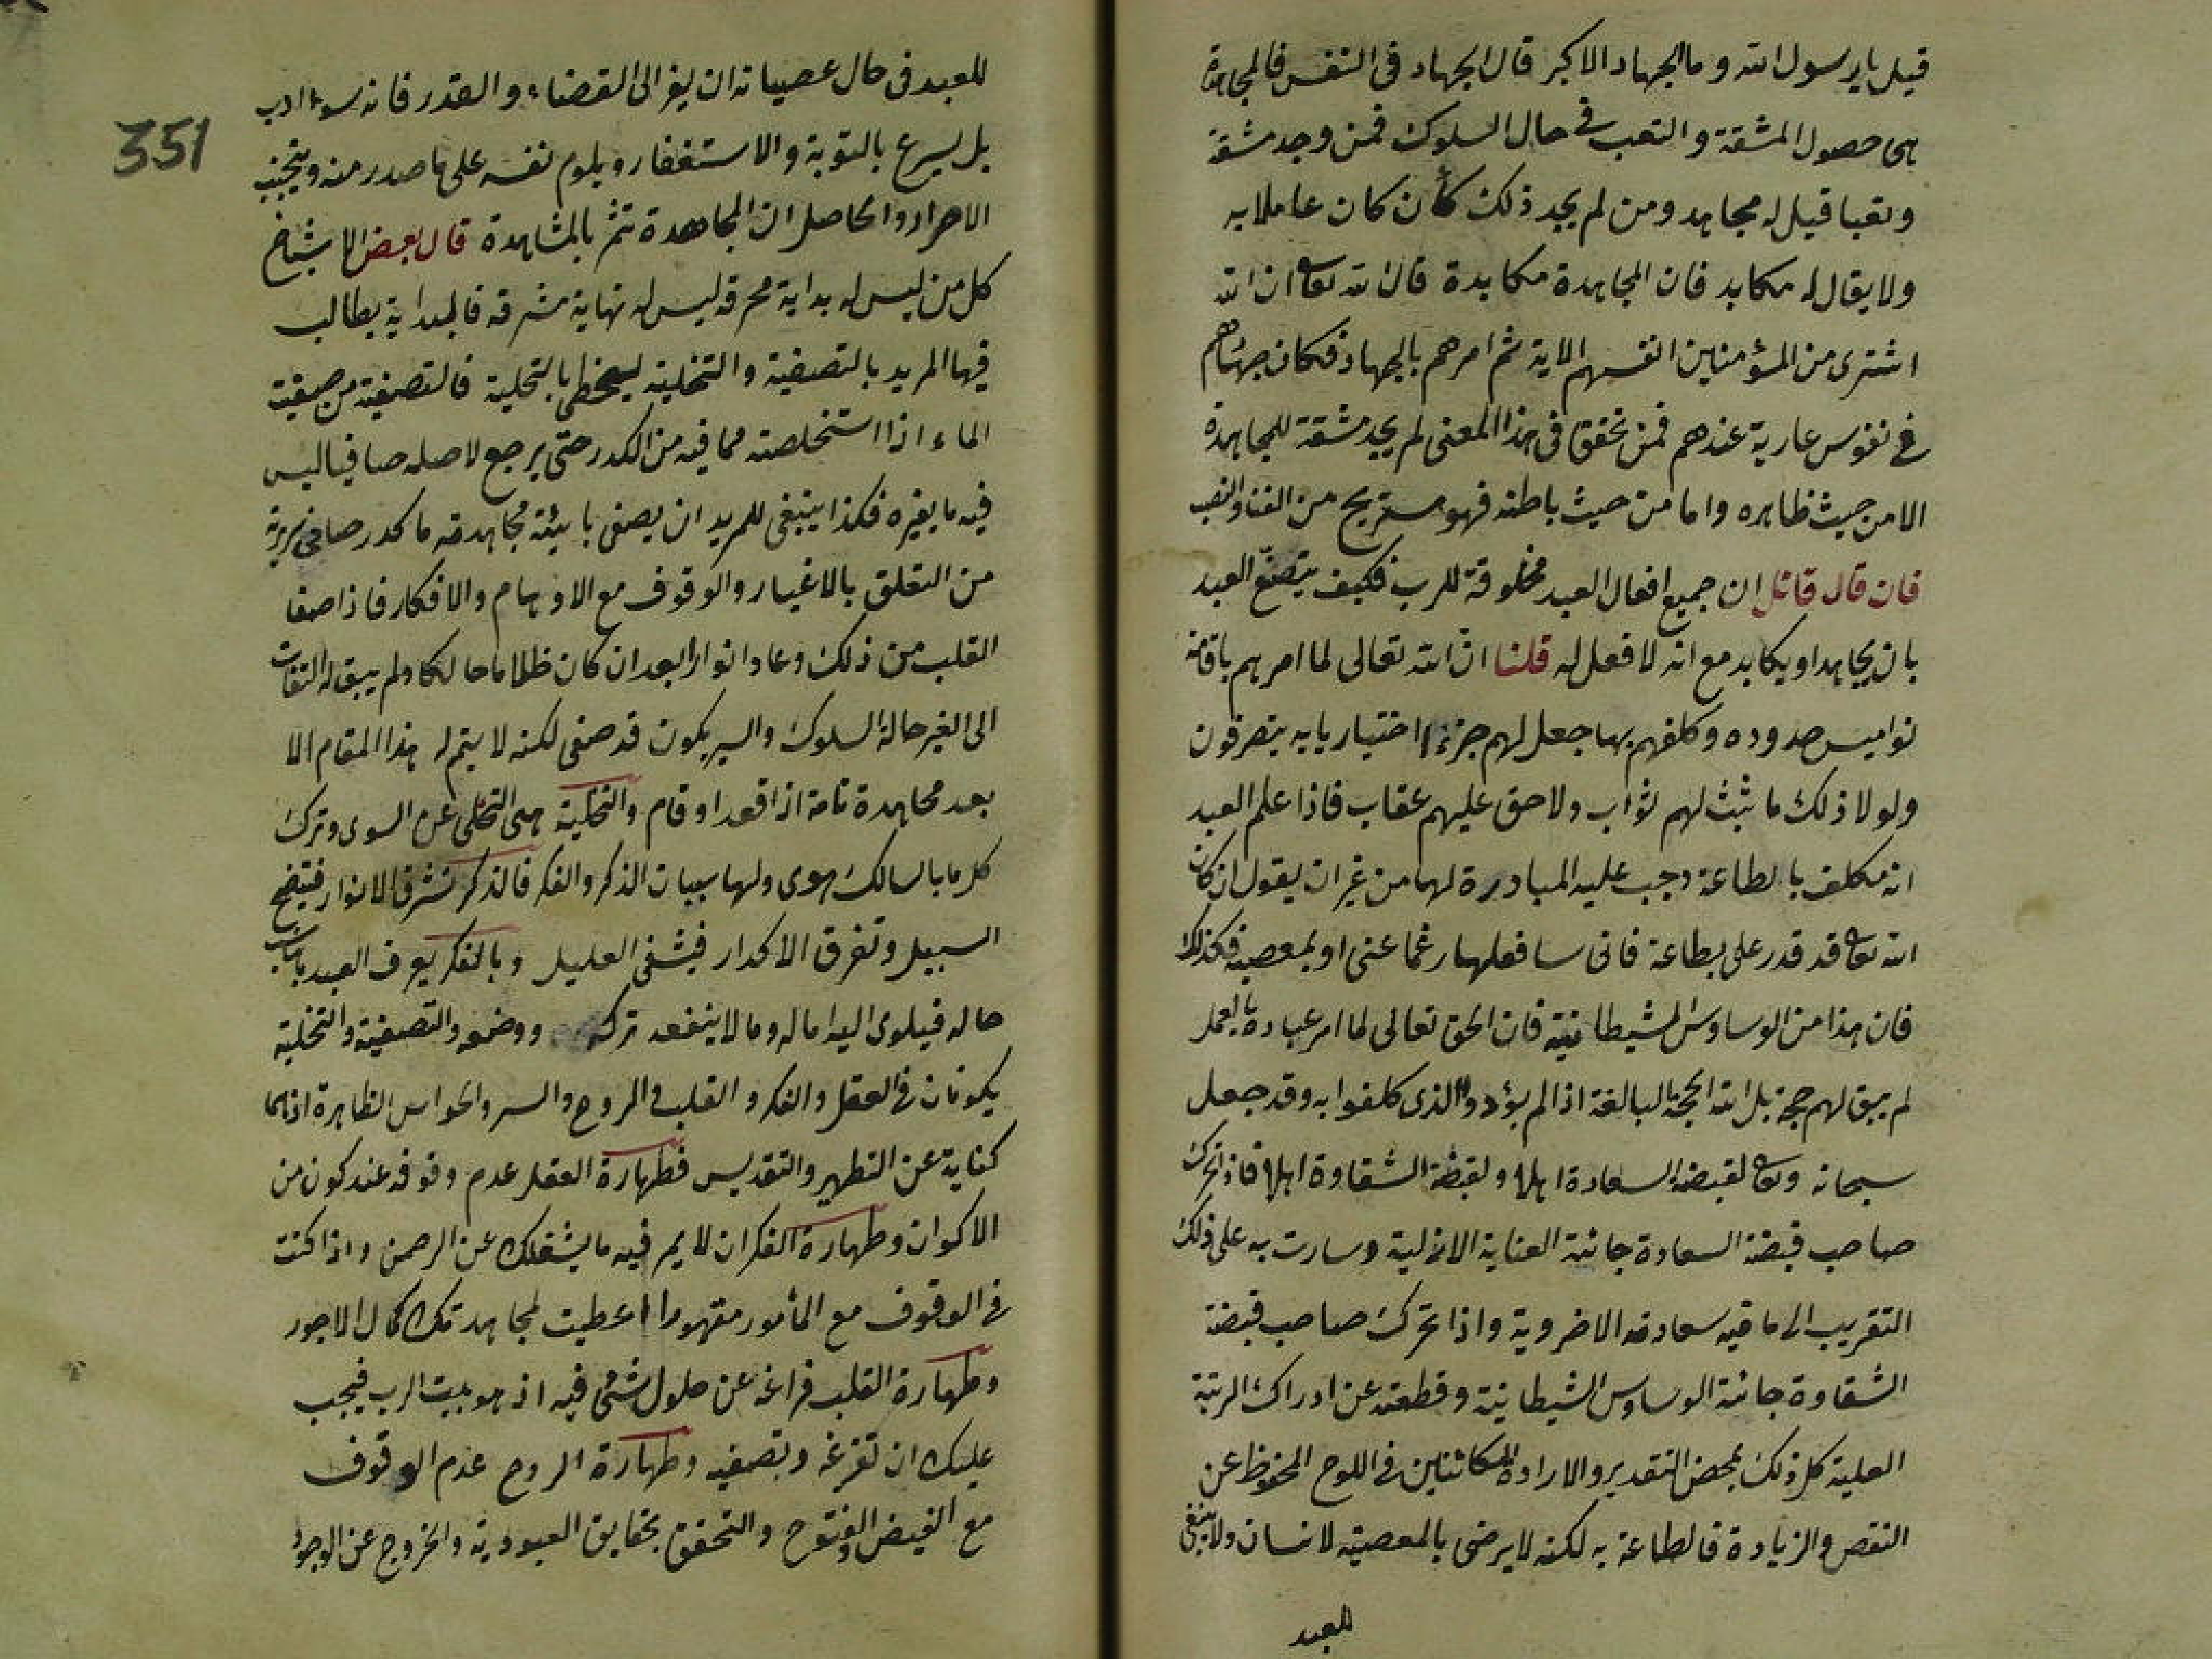 قيل يا رسول الله وما الجهاد الاكبر قال الجهاد فى النفس فالمجاهدة
هى حصول المشقة والتعب فى حال السلوك فمن وجد مشقة
وتعبا قيل له مجاهد ومن لم يجد ذلك كأن كان عاملا به
ولا يقال له مكابد فان المجاهدة مكابدة قال الله تعا ان الله
اشترى من المؤمنين انفسهم الاية ثم امرهم بالجهاد فكان جهادهم
فى نفوس عارية عندهم فمن تحقق فى هذا المعنى لم يجد مشقة للمجاهدة
الا من حيث ظاهره واما من حيث باطنه فهو مستريح من والتعب
فان قال قائل ان جميع افعال العبد مخلوقة للرب فكيف يتصنع العبد
بان يجاهد او يكابد مع انه لا فعل له قلنا ان الله تعالى لما امرهم باقامة
نواميس حدوده وكلفهم بها جعل لهم جزءا اختياريا به يتصرفون
ولولا ذلك ما ثبت لهم ثواب ولا حق عليهم عقاب فاذا علم العبد
انه مكلف بالطاعة وجب عليه المبادرة لها من غير ان يقول ان كان
الله تعا قد قدر على بطاعة فانى سافعلها رغما عنى او بمعصية فكذلك
فان هذا من الوساوس الشيطانية فان الحق تعالى لما امر عباده بالعمل
لم يبق لهم حجة بل لله الحجة البالغة اذا لم يؤدوا الذى كلفوا به وقد جعل
سبحانه وتعا لقبضة السعادة اهلا ولقبضة الشقاوة اهلا فاذا تحرك
صاحب قبضة السعادة جائته العناية الازلية وسارت به على ذلك
التقريب الى ما فيه سعادته الاخروية واذا تحرك صاحب قبضة
الشقاوة جائته الوساوس الشيطانية وقطعته عن ادراك الرتبة
العلية كل ذلك بمحض التقدير والارادة الكائنين فى اللوح المحفوظ عن
النقص والزيادة فالطاعة به لكنه لا يرضى بالمعصية لانسان ولا ينبغى
للعبد
351
للعبد فى حال عصيانه ان يفر الى القضاء والقدر فانه سوء ادب
بل يسرع بالتوبة والاستغفار ويلوم نفسه على ما صدر منه ويتجنب
الاصرار والحاصل ان المجاهدة تتم بالمشاهدة قال بعض الاشياخ
كل من ليس له بداية محرقه ليس له نهاية مشرقه فالبداية يطالب
فيها المريد بالتصفية والتخلية ليحظى بالتحلية فالتصفية من صفيت
الماء اذا استخلصته مما فيه من الكدر حتى يرجع لاصله صافيا ليس
فيه ما يغيره فكذا ينبغى للمريد ان يصفى مجاهدته ما كدر صافى
من التعلق بالاغيار والوقوف مع الاوهام والافكار فاذا صفا
القلب من ذلك وعاد انوارا بعد ان كان ظلاما حالكا ولم يبق له التفات
الى الغير حالة السلوك والسير يكون قد صفى لكنه لا يتم له هذا المقام الا
بعد مجاهدة تامة اذا قعد او قام والتخلية هى التخلى عن السوى وترك
كل ما بالسالك هوى ولها سببان الذكر والفكر فالذكر تشرق الانوار فيتضح
السبيل وتفرق الاكدار فيشفى العليل وبالفكر يعرف العبد باسباب
حاله فيلوى اليه اماله وما لا ينفعه تركه ووضعه والتصفية والتخلية
يكونان فى العقل والفكر والقلب والروح والسر والحواس الظاهرة اذ هما
كناية عن التطهير والتقديس فطهارة العقل عدم وقوفه عند كون من
الاكوان وطهارة الفكر ان لا يمر فيه ما يشغلك عن الرحمن واذا كنت
فى الوقوف مع المأمور مقهورا اعطيت لمجاهدتك كمال الاجور
وطهارة القلب فراغه عن حلول شئ فيه اذ هو بيت الرب فيجب
عليك ان تفرغه وتصفيه وطهارة الروح عدم الوقوف
مع الفيض والفتوح والتحقق بحقايق العبودية والخروج عن الوجود